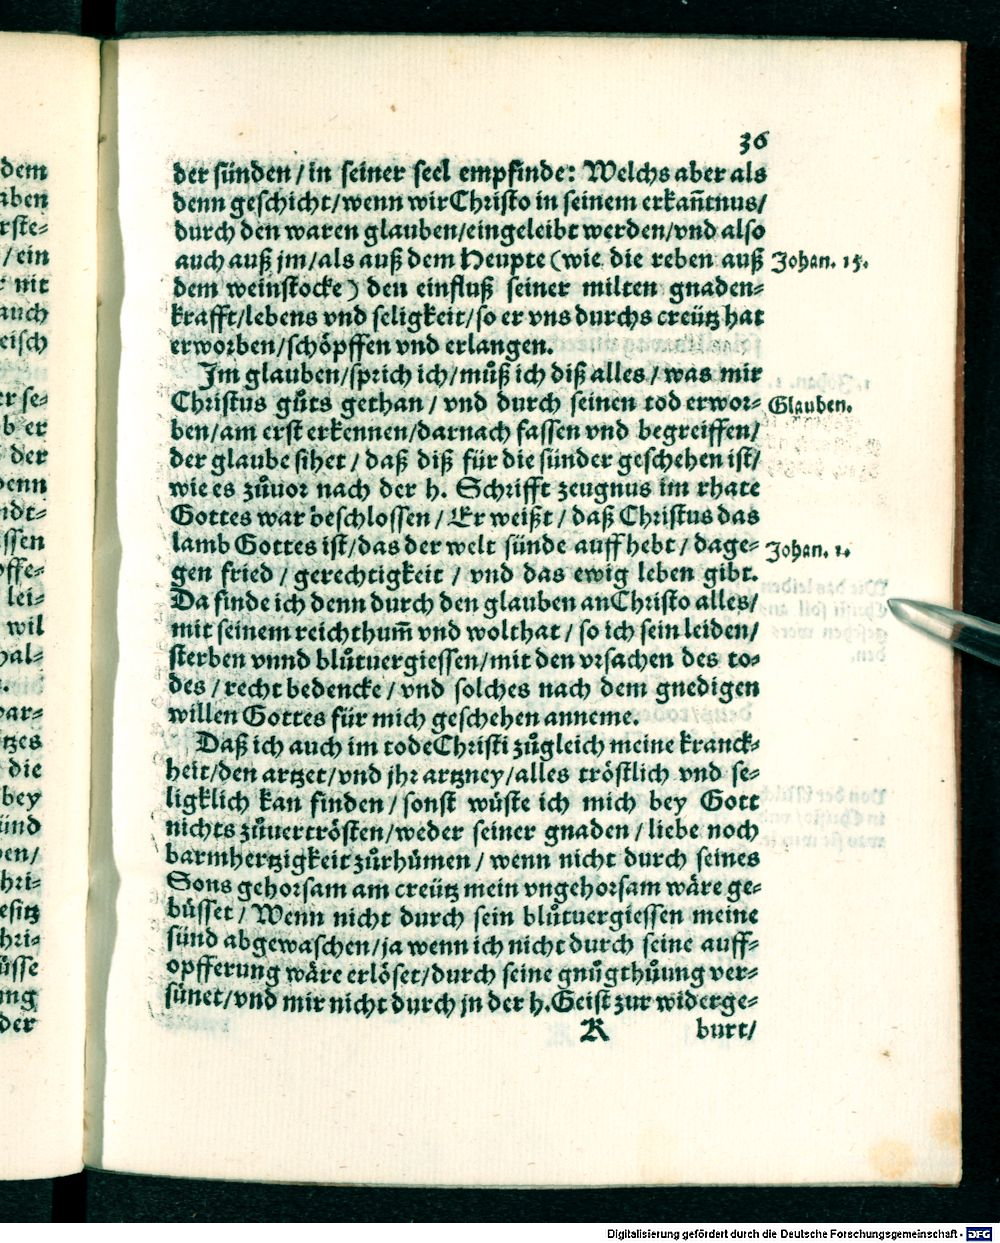 36
der sünden / in seiner seel empfinde: Welchs aber als
denn geschicht/wenn wir Christo in seinem erkañtnus/
durch den waren glauben/eingeleibt werden/vnd also
auch auß jm/als auß dem Heupte (wie die reben auß
Johan. 15.
dem weinstocke) den einfluß seiner milten gnaden-
krafft/lebens vnd seligkeit/so er vns durchs creütz hat
erworben/schöpffen vnd erlangen.
Im glauben/sprich ich/můß ich diß alles / was mir
Christus gůts gethan / vnd durch seinen tod erwor-
Glauben.
ben/am erst erkennen/darnach fassen vnd begreiffen/
der glaube sihet / daß diß für die sünder geschehen ist/
wie es zůuor nach der h. Schrifft zeugnus im rhate
Gottes war beschlossen / Er weißt / daß Christus das
lamb Gottes ist/das der welt sünde auffhebt / dage-
Johan. 1.
gen fried / gerechtigkeit / vnd das ewig leben gibt.
Da finde ich denn durch den glauben an Christo alles/
mit seinem reichthum̃ vnd wolthat / so ich sein leiden/
sterben vnnd blůtuergiessen/mit den vrsachen des to-
des / recht bedencke / vnd solches nach dem gnedigen
willen Gottes für mich geschehen anneme.
Daß ich auch im tode Christi zůgleich meine kranck-
heit/den artzet/vnd jhr artzney/alles tröstlich vnd se-
ligklich kan finden / sonst wüste ich mich bey Gott
nichts zůuertrösten/weder seiner gnaden / liebe noch
barmhertzigkeit zůrhümen / wenn nicht durch seines
Sons gehorsam am creütz mein vngehorsam wäre ge-
büsset / Wenn nicht durch sein blůtuergiessen meine
sünd abgewaschen/ja wenn ich nicht durch seine auff-
opfferung wäre erlöset/durch seine gnůgthůung ver-
sünet/vnd mir nicht durch jn der h. Geist zur widerge-
K burt/
dem
aben
rste-
/ ein
nit
auch
eisch
er se-
b er
der
denn
ndt-
ssen
offe-
lei-
wil
hal-
par-
tzes
die
bey
ünd
ben/
hri-
esitz
hri-
üsse
ung
der
Digitalisierung gefördert durch die Deutsche Forschungsgemeinschaft - DFG